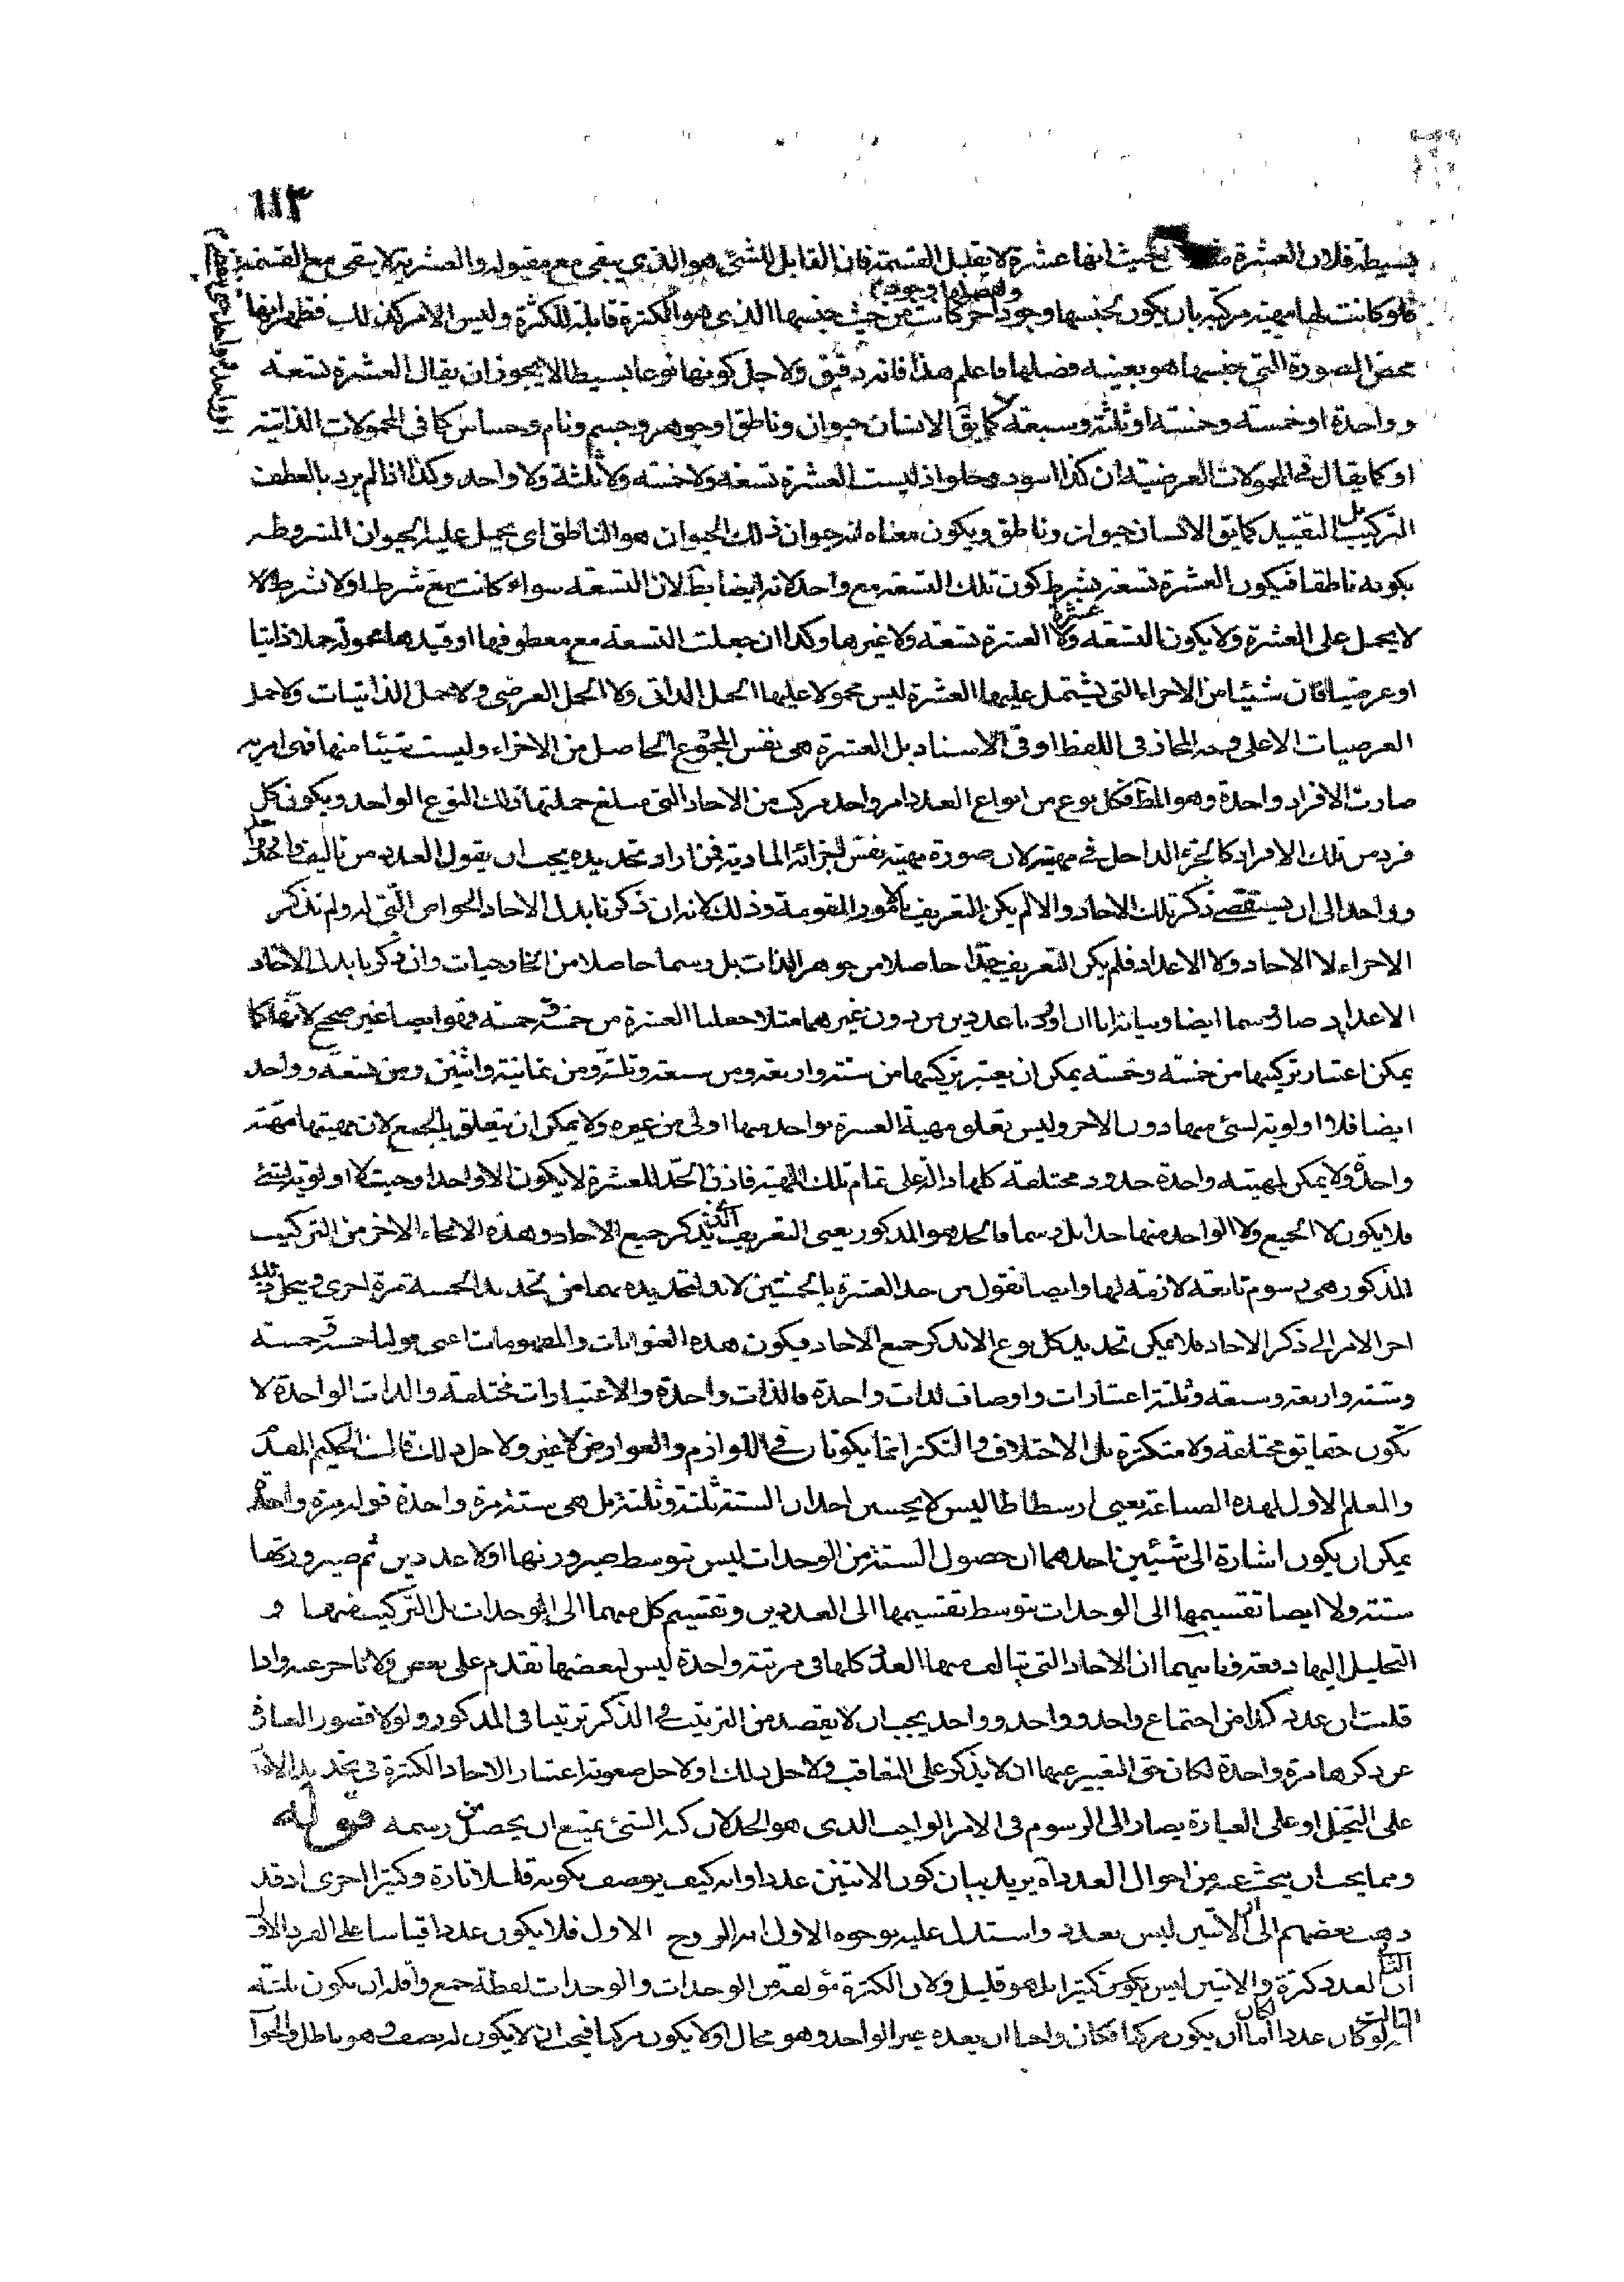 ١١٣
بسيطة فلان العشرة من حيث انها عشرة لا يقبل القسمة فان القابل للشئ هو الذي يبقى مع مقبوله والعشرية لا يبقى مع القسمة
فلو كانت لها مهية مركبة بان يكون لجنسها وجود ولفصلها وجود اخر كانت من حيث جنسها الذي هو الكثرة قابلة للكثرة وليس الامر كذلك فظهر انها
محض الصورة التي جنسها هو بعينه فصلها فاعلم هذا فانه دقيق ولاجل كونها نوعا بسيطا لا يجوز ان يقال العشرة تسعة
وواحدة او خمسة وخمسة او ثلثة وسبعة كما يق الانسان حيوان وناطق او جوهر وجسم ونام وحساس كما في المحمولات الذاتية
او كما يقال في المحمولات العرضية ان كذا اسود وحلو اذ ليست العشرة تسعة ولا خمسة ولا ثلثة ولا واحد وكذا اذا لم يرد بالعطف
التركيب بل التقييد كما يق الانسان حيوان وناطق ويكون معناه انه حيوان ذلك الحيوان هو الناطق اي يحمل عليه الحيوان المشروط
بكونه ناطقا فيكون العشرة تسعة بشرط كون تلك التسعة مع واحد لانه ايضا بط لان التسعة سواء كانت مع شرط او لا شرط لا
لا يحمل على العشرة ولا يكون التسعة عشرة ولا العشرة تسعة ولا غيرها وكذا ان جعلت التسعة مع معطوفها او قيدها محمولة حملا ذاتيا
او عرضيا فان شيئا من الاجزاء التي يشتمل عليها العشرة ليس محمولا عليها الحمل الذاتي ولا الحمل العرضي ولا حمل الذاتيات ولا حمل
العرضيات الا على وجه المجاز في اللفظ او في الاسناد بل العشرة هي نفس المجموع الحاصل من الاجزاء وليست شيئا منها فهي امر به
صارت الافراد واحدة وهو المط فكل نوع من انواع العدد امر واحد مركب من الاحاد التي مبلغ جملتها ذلك النوع الواحد ويكون كل
فرد من تلك الافراد كالجزء الداخل في مهيته لان صورة مهيته نفس اجزائه المادية فمن اراد تحديده يجب ان يقول العدد من تاليف واحد وواحد
وواحد الى ان يستقصي ذكر تلك الاحاد والا لم يكن التعريف بالامور المقومة وذلك لانه ان ذكرنا بدل الاحاد الخواص التي له ولم نذكر
الاجزاء لا الاحاد ولا الاعداد فلم يكن التعريف حدا حاصلا من جوهر الذات بل رسما حاصلا من الخارجيات وان ذكرنا بدل الاحاد
الاعداد صار رسما ايضا وبيانه انا ان اوردنا عددين من دون غيرهما مثلا جعلنا العشرة من خمسة وخمسة فهو ايضا غير صحيح لانها كما
يمكن اعتبار تركيبها من خمسة وخمسة يمكن ان يعتبر تركيبها من ستة واربعة ومن سبعة وثلثة ومن ثمانية واثنين ومن تسعة وواحد
ايضا فلا اولوية لشئ منها دون الاخر وليس تعلق مهية العشرة بواحد منها اولى من غيره ولا يمكن ان يتعلق بالجميع لان مهيتها مهية
واحدة ولا يمكن لمهية واحدة حدود مختلفة كلها دالة على تمام تلك المهية فاذن الحد للعشرة لا يكون الا واحدا وحيث لا اولوية لشئ
فلا يكون لا الجميع ولا الواحد منها حدا بل رسما فالحد هو المذكور يعني التعريف الذي يذكر جميع الاحاد وهذه الانحاء الاخر من التركيب
المذكور هي رسوم تابعة لازمة لها وايضا نقول من حد العشرة بالخمستين لابد لتحديده بهما من تحديد الخمسة مرة اخرى فينحل
اخر الامر الى ذكر الاحاد فلا يمكن تحديد كل نوع الا بذكر جميع الاحاد ويكون هذه العنوانات والمفهومات اعني قولنا خمسة وخمسة
وستة واربعة وسبعة وثلثة اعتبارات واوصاف لذات واحدة فالذات واحدة والاعتبارات مختلفة والذات الواحدة لا
تكون حقايق مختلفة ولا متكثرة بل الاختلاف والتكثر انما يكونان في اللوازم والعوارض لا غير ولاجل ذلك قال الحكيم المقدم
والمعلم الاول لهذه الصناعة يعني ارسطاطاليس لا يحسبن احد ان الستة ثلثة وثلثة بل هي ستة مرة واحدة قوله مرة واحدة
يمكن ان يكون اشارة الى شيئين احدهما ان حصول الستة من الوحدات ليس بتوسط صيرورتها اولا عددين ثم صيرورتها
ستة ولا ايضا تقسيمها الى الوحدات بتوسط تقسيمها الى العددين وتقسيم كل منهما الى الوحدات بل التركيب منها و
التحليل اليها دفعة وثانيهما ان الاحاد التي يتالف منها العدد كلها في مرتبة واحدة ليس لبعضها تقدم على بعض ولا تاخر عنه واذا
قلت ان عدد كذا من اجتماع واحد وواحد وواحد يجب ان لا يقصد من الترتيب في الذكر ترتيبا في المذكور ولولا قصور العبارة
عن ذكرها مرة واحدة لكان حق التعبير عنها ان لا يذكر على التعاقب ولاجل ذلك او لاجل صعوبة اعتبار الاحاد الكثرة في تحديد
على التخيل او على العبارة يصار الى الرسوم في الامر الواجب الذي هو الحد لان كنه الشئ يمتنع ان يحصل من رسمه قوله
ومما يجب ان يبحث عنه من احوال العدد اه يريد بيان كون الاثنين عددا وانه كيف يوصف بكونه قليلا تارة وكثيرا اخرى اذ قد
ذهب بعضهم الى ان الاثنين ليس بعدد واستدل عليه بوجوه الاول انه الزوج الاول فلا يكون عددا قياسا على الفرد الاول
الثاني ان العدد كثرة والاثنين ليس بكثير بل هو قليل ولان الكثرة مؤلفة من الوحدات والوحدات لفظة جمع واقله ان يكون ثلثة
الثالث انه لو كان عددا لكان اما ان يكون مركبا فكان واجبا ان يعده غير الواحد وهو محال او لا يكون مركبا فيجب ان لا يكون له نصف وهو باطل والجواب